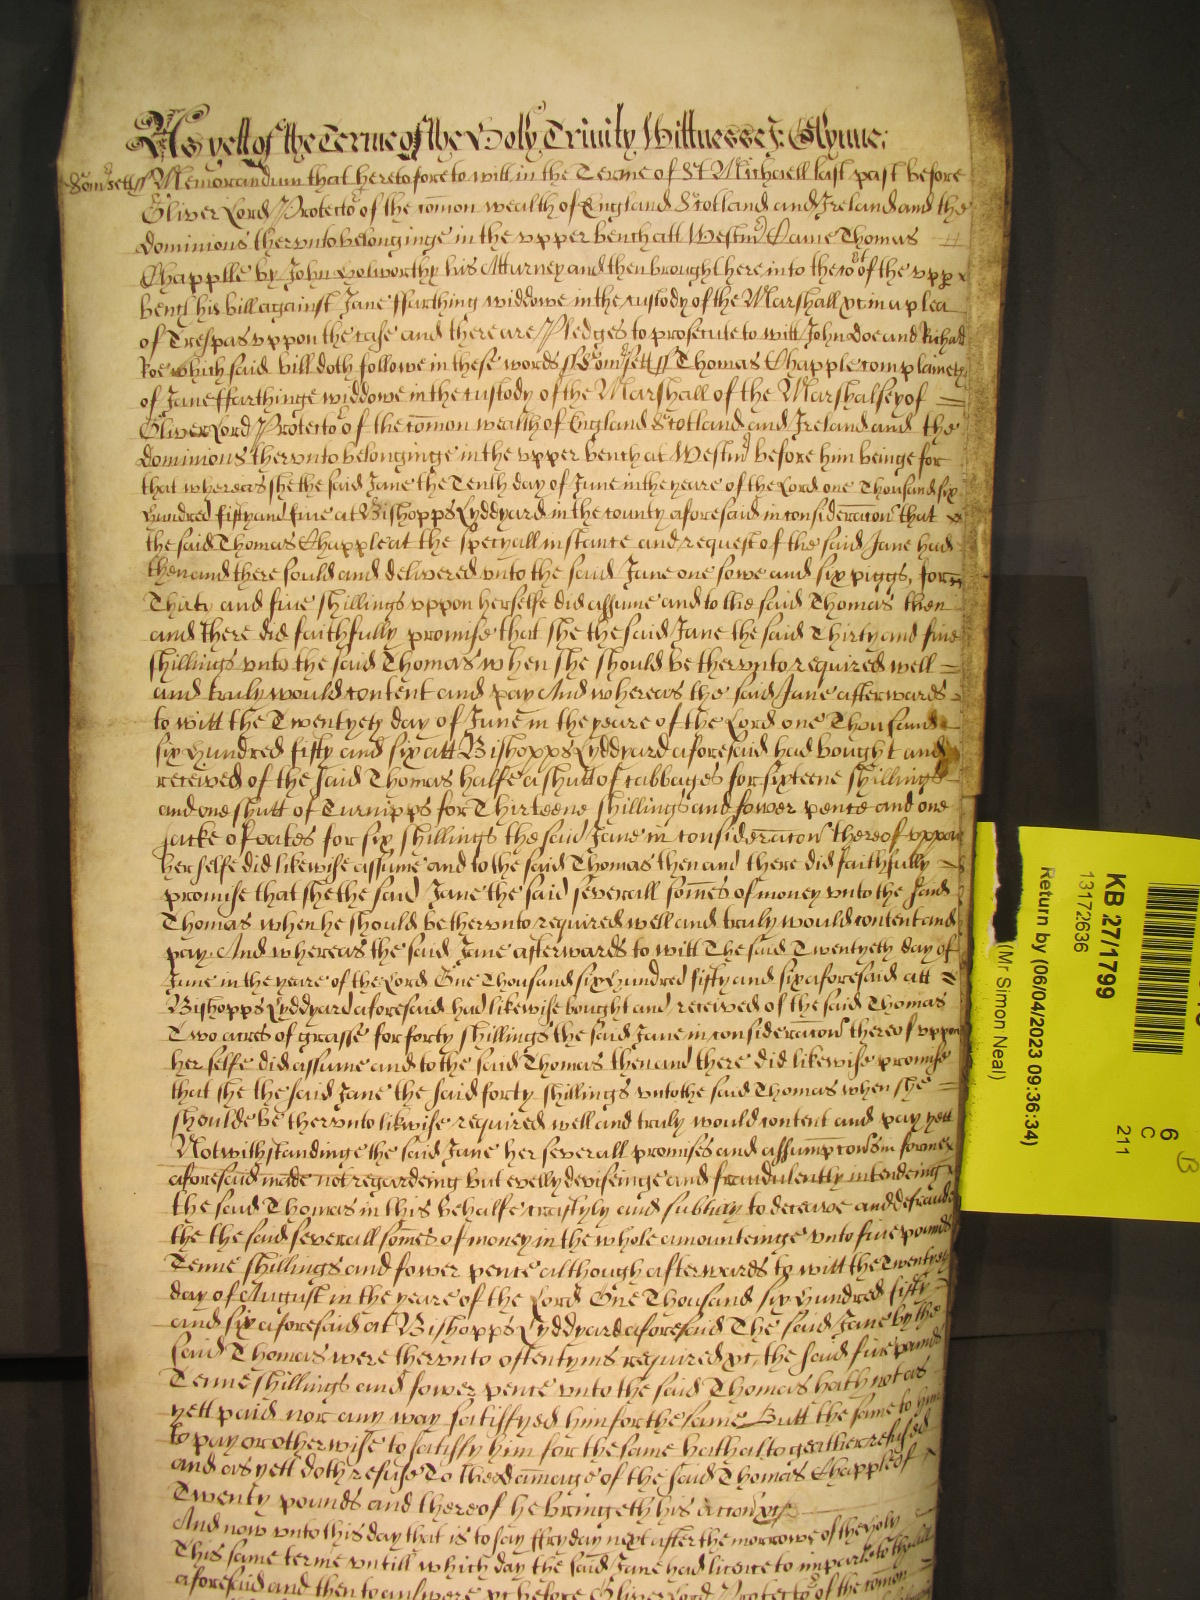 As yett of the Terme of the Holy Trinity Wittnesse J: Glynne:
Somsett ss Memorandum that heretofore to witt in the Terme of St Michaell last past before
Oliver Lord Protector of the comon wealth of England Scotland and Ireland and the
dominions thervnto belonginge in the vpper bench att Westmr Came Thomas
Chapplle by John Holworthy his Atturney and then brought here into the cort of the vpp
bench his bill against Jane ffarthing widdowe in the custody of the Marshall &c in a plea
of Trespas vppon the case and there are Pledges to prosecute to witt John Doe and Richard
Roe which said bill doth followe in these words ss Somsett ss Thomas Chapple complaineth
of Jane ffarthinge widdowe in the custody of the Marshall of the Marshalsey of
Oliver Lord Protector of the comon wealth of England Scotland and Ireland and the
dominions thervnto belonginge in the vpper bench at Westmr before him beinge for
that whereas she the said Jane the Tenth day of June in the yeare of the Lord one Thousand six
hundred fifty and five at Bishopps Lyddyard in the county aforesaid in consideracon that
the said Thomas Chapple at the specyall instance and request of the said Jane had
then and there sould and delivered vnto the said Jane one sowe and six piggs, for
Thirty and five shillings vppon herselfe did assume and to the said Thomas then
and there did faithfully promise that she the said Jane the said Thirty and five
shillings vnto the said Thomas when she should be thervnto required well
and truly would content and pay And whereas the said Jane afterwards
to witt the Twentyety day of June in the yeare of the Lord one Thousand
six hundred fifty and six att Bishopps Lyddyard aforesaid had bought and
received of the said Thomas halfe a shutt of cabbages for sixteene shillings
and one shutt of Turnipps for Thirteene shillings and fower pence and one
sacke of oates for six shillings the said Jane in consideracon thereof vppon
herselfe did likewise assume and to the said Thomas then and there did faithfully
promise that she the said Jane the said severall somes of money vnto the said
Thomas when he should be thervnto required well and truly would content and
pay And whereas the said Jane afterwards to witt The said Twentyety day of
June in the yeare of the Lord One Thousand six hundred fifty and six aforesaid att
Bishopps Lyddyard aforesaid had likewise bought and received of the said Thomas
Two acres of grasse for forty shillings the said Jane in consideracon thereof vppon
her selfe did assume and to the said Thomas then and there did likewise promise
that she the said Jane the said forty shillings vnto the said Thomas when she
should be thervnto likwise required well and truly would content and pay yett
Notwithstandinge the said Jane her severall promises and assumpcons in forme
aforesaid made not regardeing but evelly deviseinge and fraudulently intendeing
the said Thomas in this behalfe craftyly and subtilly to deceave and defraude
the the said severall somes of money in the whole amounteinge vnto five pounds
Tenne shillings and fower pence although afterwards to witt the Twentyety
day of August in the yeare of the Lord One Thousand six hundred fifty
and six aforesaid at Bishopps Lyddyard aforesaid The said Jane by the
said Thomas were thervnto oftentyms required &c, the said five pounds
Tenne shillings and fower pence vnto the said Thomas hath not as
yett paid nor any way satisfyed him for the same Butt the same to him
to pay or otherwise to satisfy him for the same hath altogeather refused
and as yett doth refuse To the damage of the said Thomas Chapple of
Twenty pounds and thereof he bringeth his accon &c
And now vnto this day that is to say ffryday next after the morrowe of the holy
This same terme vntill which day the said Jane had licence to imparle to the bill
aforesaid and then to answere &c before Oliver Lord Protector of the comon
KB 27/1799
13172636
Return by (06/04/2023 09:36:34)
(Mr Simon Neal)
6
C
211